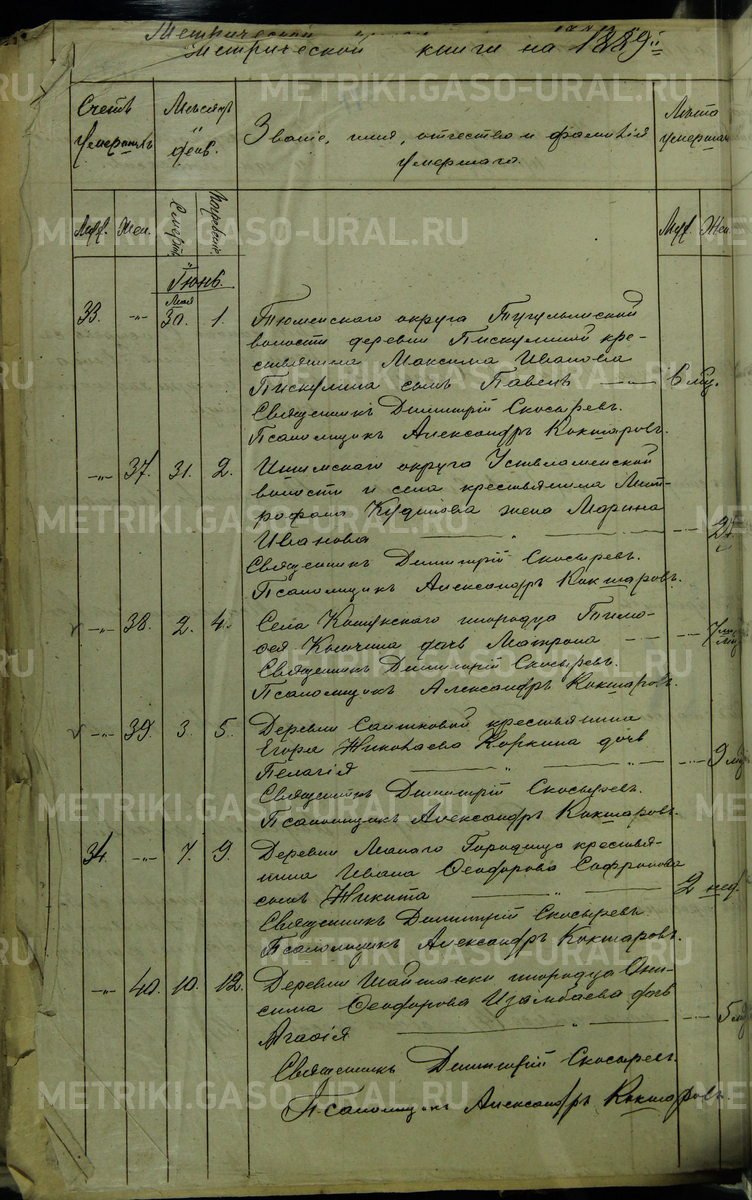 Метрической книги на 1889 г.
Счетъ умершихъ
Мѣсяцъ и день.
Званіе, имя, отчество и фамилія умершаго.
Лѣта умершаго
Муж. Жен. Смерти. Погребенія. Муж. Жен.
Іюнь.
33. -"- Мая 30. 1. Тюменскаго округа Тугулымской
волости деревни Пискулиной кре-
стьянина Максима Иванова
Пискулина сынъ Павелъ 6 мѣс.
Священникъ Димитрій Скосыревъ.
Псаломщикъ Александръ Кокшаровъ.
-"- 37. 31. 2. Ишимскаго округа Устьламенской
волости и села крестьянина Мит-
рофана жена Марина
Иванова
Священникъ Димитрій Скосыревъ.
Псаломщикъ Александръ Кокшаровъ.
-"- 38. 2. 4. Села Кошукскаго инородца Тимо-
фея дочь Матрона
Священникъ Димитрій Скосыревъ.
Псаломщикъ Александръ Кокшаровъ.
-"- 39. 3. 5. Деревни Саитковой крестьянина
Егора Николаева Коркина дочь
Пелагія 9 мѣс.
Священникъ Димитрій Скосыревъ.
Псаломщикъ Александръ Кокшаровъ.
34. -"- 7. 9. Деревни Малаго Городища крестья-
нина Ивана Ѳеодорова Сафронова
сынъ Никита 2 нед.
Священникъ Димитрій Скосыревъ.
Псаломщикъ Александръ Кокшаровъ.
-"- 40. 10. 12. Деревни Шайтанки инородца Они-
сима Ѳеодорова дочь
Агафія
Священникъ Димитрій Скосыревъ.
Псаломщикъ Александръ Кокшаровъ
METRIKI.GASO-URAL.RU